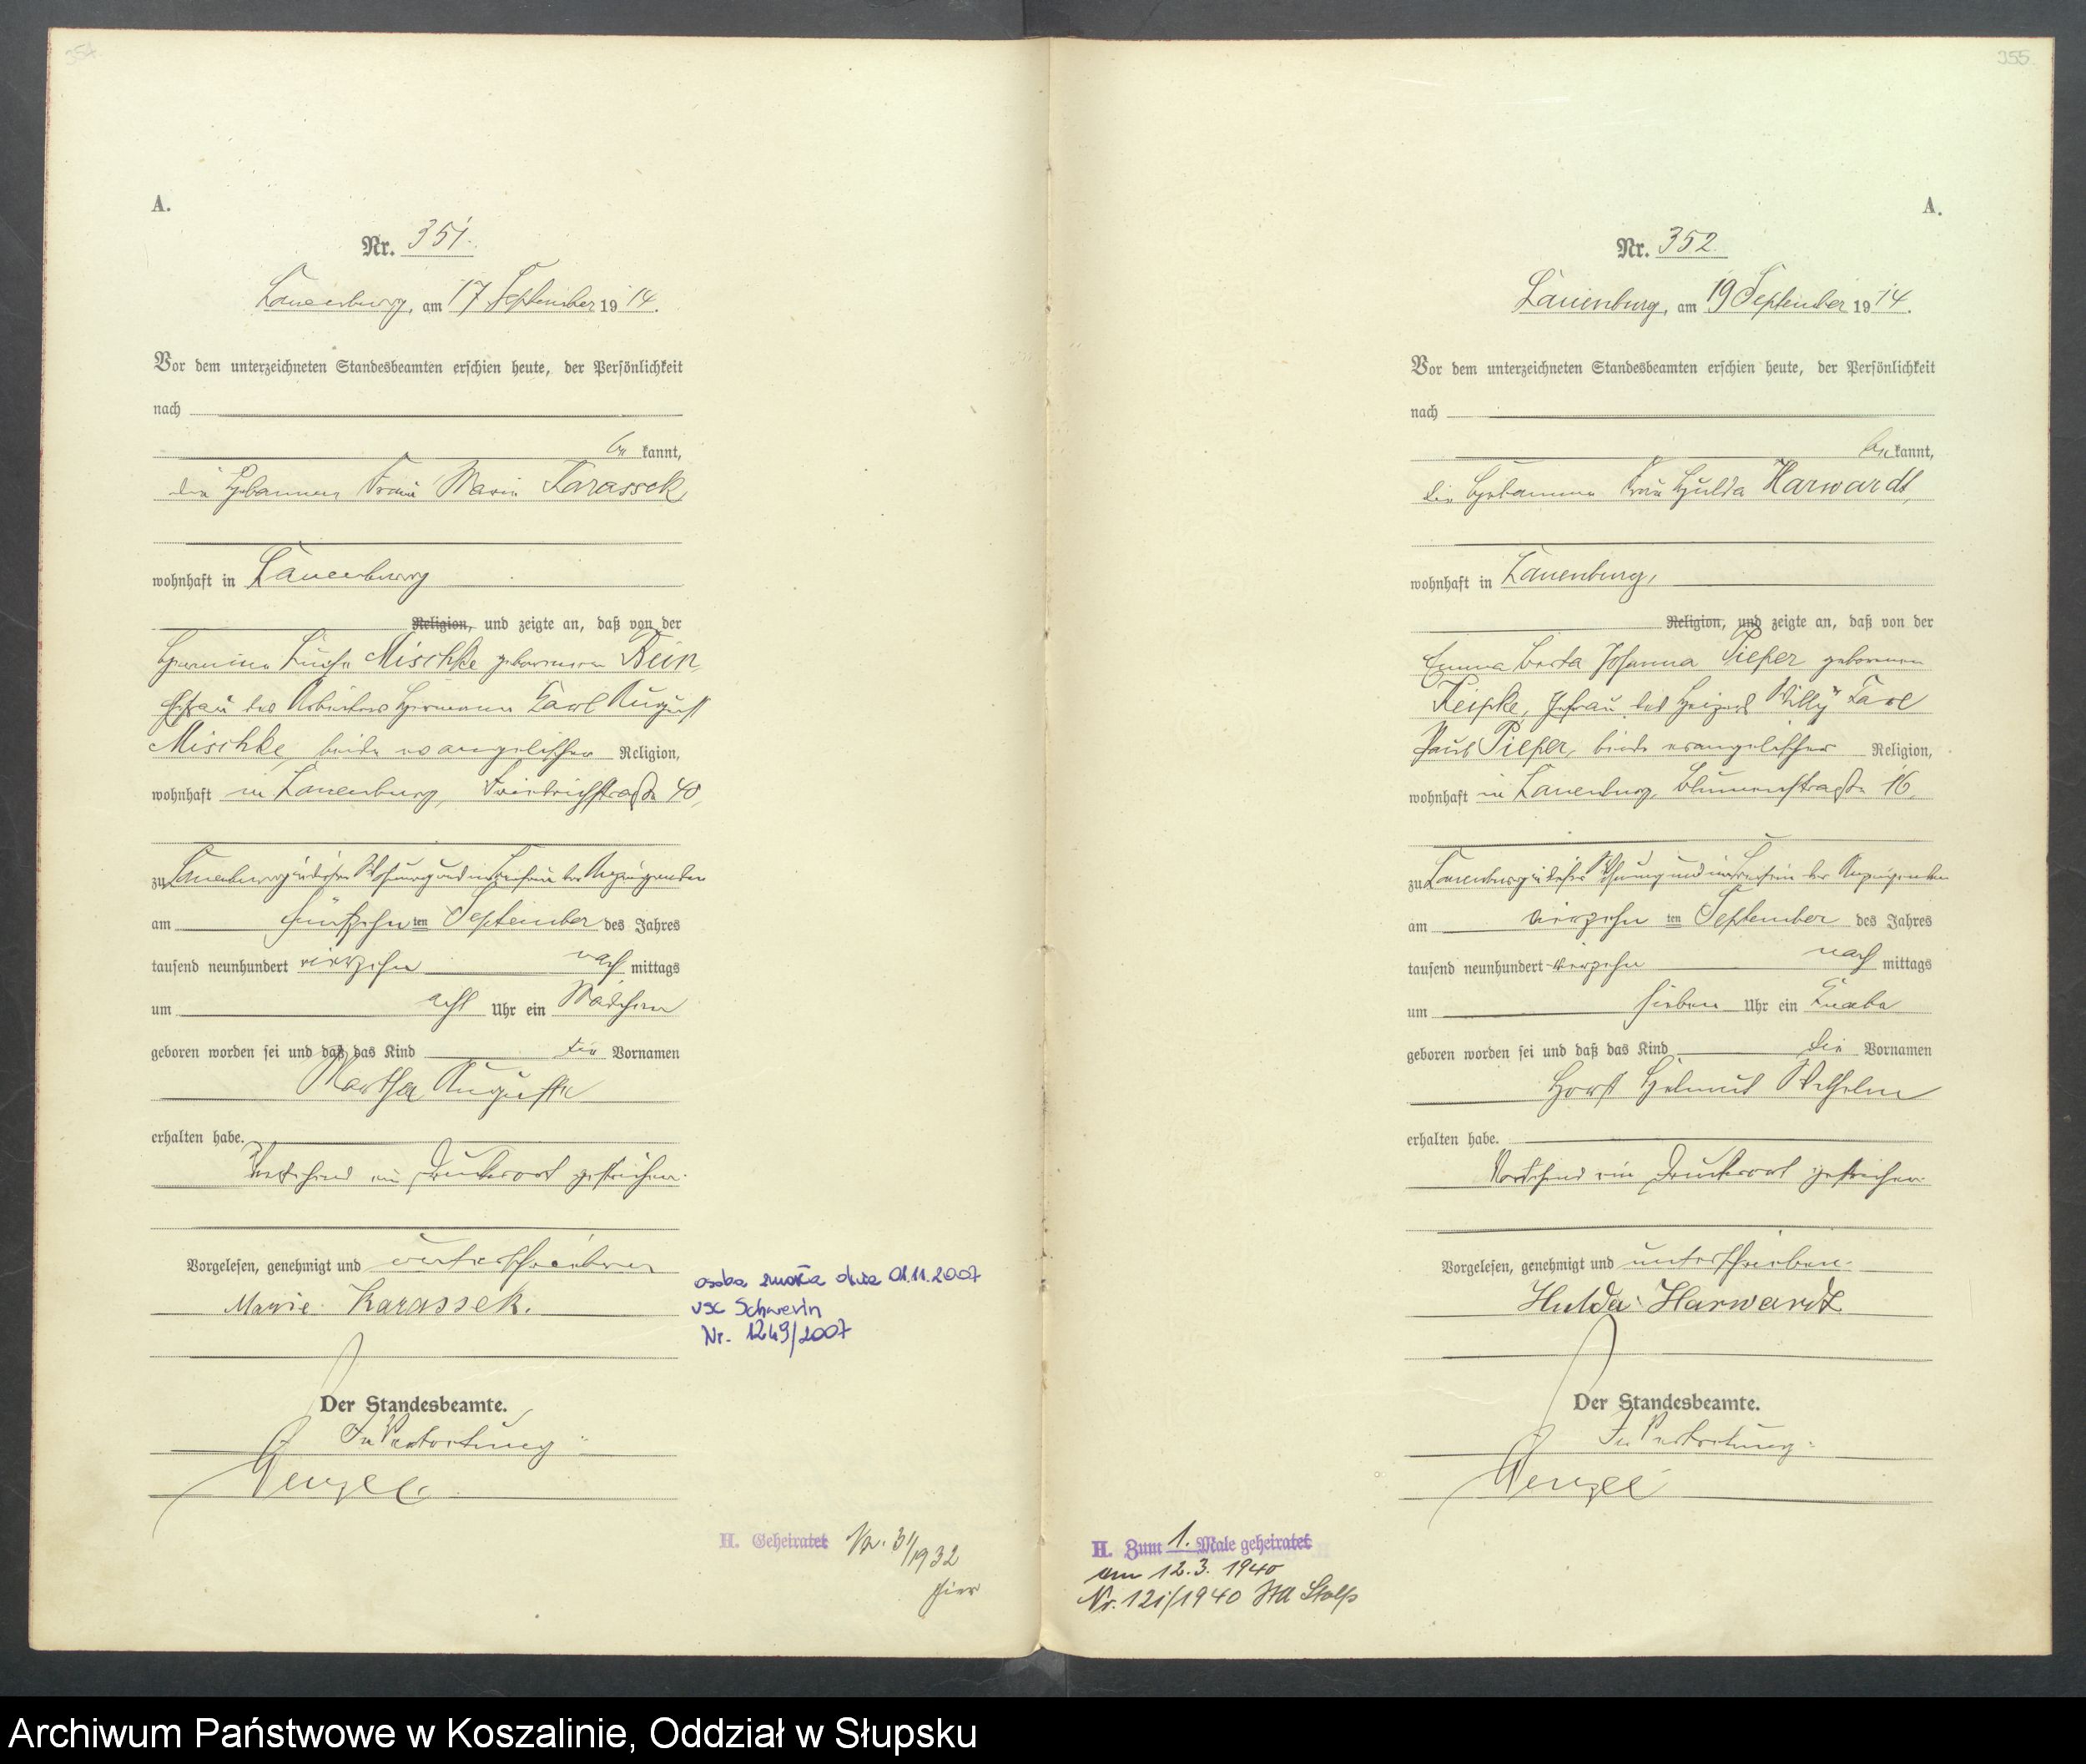 354
A.
Nr. 351.
Lauenburg, am 17 September 1914.
Vor dem unterzeichneten Standesbeamten erschien heute, der Persönlichkeit
nach
be kannt,
die Hebamme Frau Marie Karassek,
wohnhaft in Lauenburg
Religion, und zeigte an, daß von der
Hermine Luise Mischke geborenen Bein,
Ehefrau des Arbeiters Hermann Karl August
Mischke, beide evangelischer Religion,
wohnhaft in Lauenburg, Friedrichstraße 40,
zu Lauenburg in dieser Wohnung und in Beisein der Anzeigenden
am fünfzehn ten September des Jahres
tausend neunhundert vierzehn nach mittags
um acht Uhr ein Mädchen
geboren worden sei und daß das Kind die Vornamen
Martha Auguste
erhalten habe.
Vorstehend ein Druckwort gestrichen.
Vorgelesen, genehmigt und unterschrieben
Marie Karassek.
Der Standesbeamte.
In Vertretung:
Wenzel
osoba zmarła dnia 01.11.2007
USC Schwerin
Nr. 1249/2007
H. Geheiratet Nr. 31/1932
hier
355
A.
Nr. 352
Lauenburg, am 19 September 1914.
Vor dem unterzeichneten Standesbeamten erschien heute, der Persönlichkeit
nach
be kannt,
die Hebamme Frau Hulda Harwardt,
wohnhaft in Lauenburg,
Religion, und zeigte an, daß von der
Emma Berta Johanna Pieper geborenen
Keipke, Ehefrau des Heizers Willy Karl
Paul Pieper, beide evangelischer Religion,
wohnhaft in Lauenburg, Blumenstraße 16,
zu Lauenburg in dieser Wohnung und in Beisein der Anzeigenden
am vierzehn ten September des Jahres
tausend neunhundert vierzehn nach mittags
um sieben Uhr ein Knabe
geboren worden sei und daß das Kind die Vornamen
Horst Helmut Wilhelm
erhalten habe.
Vorstehend ein Druckwort gestrichen.
Vorgelesen, genehmigt und unterschrieben.
Hulda Harwardt
Der Standesbeamte.
In Vertretung:
Wenzel
H. Zum 1. Male geheiratet
am 12.3. 1940
Nr. 121/1940 StA Stolp
Archiwum Państwowe w Koszalinie, Oddział w Słupsku